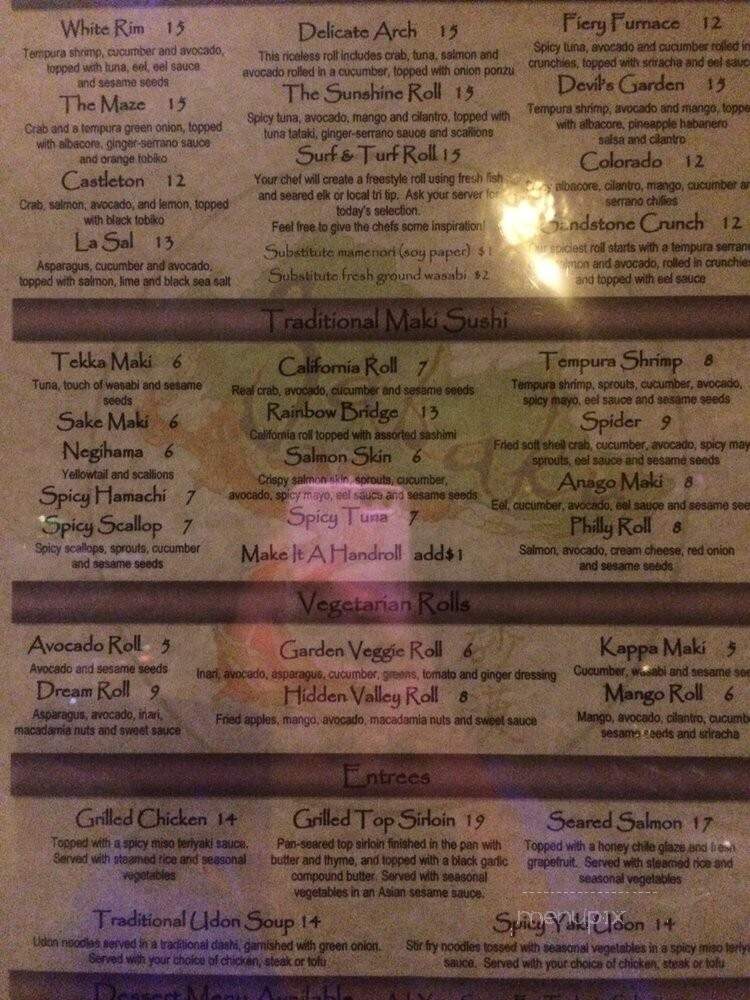 White Rim 15
Tempura shrimp, cucumber and avocado,
topped with tuna, eel, eel sauce
and sesame seeds
The Maze 15
Crab and a tempura green onion, topped
with albacore, ginger-serrano sauce
and orange tobiko
Castleton 12
Crab, salmon, avocado, and lemon, topped
with black tobiko
La Sal 13
Asparagus, cucumber and avocado,
topped with salmon, lime and black sea salt
Delicate Arch 15
This riceless roll includes crab, tuna, salmon and
avocado rolled in a cucumber, topped with onion ponzu
The Sunshine Roll 15
Spicy tuna, avocado, mango and cilantro, topped with
tuna tataki, ginger-serrano sauce and scallions
Surf & Turf Roll 15
Your chef will create a freestyle roll using fresh fish
and seared elk or local tri tip. Ask your server for
today's selection.
Feel free to give the chefs some inspiration!
Substitute mamenori (soy paper) $1
Substitute fresh ground wasabi $2
Fiery Furnace 12
Spicy tuna, avocado and cucumber rolled in
crunchies, topped with sriracha and eel sauc
Devil's Garden 15
Tempura shrimp, avocado and mango, topp
with albacore, pineapple habanero
salsa and cilantro
Colorado 12
albacore, cilantro, mango, cucumber an
serrano chilies
Sandstone Crunch 12
spiciest roll starts with a tempura serrano
and avocado, rolled in crunchies
and topped with eel sauce
Traditional Maki Sushi
Tekka Maki 6
Tuna, touch of wasabi and sesame
seeds
Sake Maki 6
Negihama 6
Yellowtail and scallions
Spicy Hamachi 7
Spicy Scallop 7
Spicy scallops, sprouts, cucumber
and sesame seeds
California Roll 7
Real crab, avocado, cucumber and sesame seeds
Rainbow Bridge 13
California roll topped with assorted sashimi
Salmon Skin 6
Crispy salmon skin, sprouts, cucumber,
avocado, spicy mayo, eel sauce and sesame seeds
Spicy Tuna 7
Make It A Handroll add$1
Tempura Shrimp 8
Tempura shrimp, sprouts, cucumber, avocado,
spicy mayo, eel sauce and sesame seeds
Spider 9
Fried soft shell crab, cucumber, avocado, spicy may
sprouts, eel sauce and sesame seeds
Anago Maki 8
Eel, cucumber, avocado, eel sauce and sesame see
Philly Roll 8
Salmon, avocado, cream cheese, red onion
and sesame seeds
Vegetarian Rolls
Avocado Roll 5
Avocado and sesame seeds
Dream Roll 9
Asparagus, avocado, inari,
macadamia nuts and sweet sauce
Garden Veggie Roll 6
Inari, avocado, asparagus, cucumber, greens, tomato and ginger dressing
Hidden Valley Roll 8
Fried apples, mango, avocado, macadamia nuts and sweet sauce
Kappa Maki 5
Cucumber, wasabi and sesame see
Mango Roll 6
Mango, avocado, cilantro, cucumb
sesame seeds and sriracha
Entrees
Grilled Chicken 14
Topped with a spicy miso teriyaki sauce.
Served with steamed rice and seasonal
vegetables
Grilled Top Sirloin 19
Pan-seared top sirloin finished in the pan with
butter and thyme, and topped with a black garlic
compound butter. Served with seasonal
vegetables in an Asian sesame sauce.
Seared Salmon 17
Topped with a honey chile glaze and fresh
grapefruit. Served with steamed rice and
seasonal vegetables
menupix
Traditional Udon Soup 14
Udon noodles served in a traditional dashi, garnished with green onion.
Served with your choice of chicken, steak or tofu
Spicy Yaki Udon 14
Stir fry noodles tossed with seasonal vegetables in a spicy miso teriya
sauce. Served with your choice of chicken, steak or tofu
Dessert Menu Available